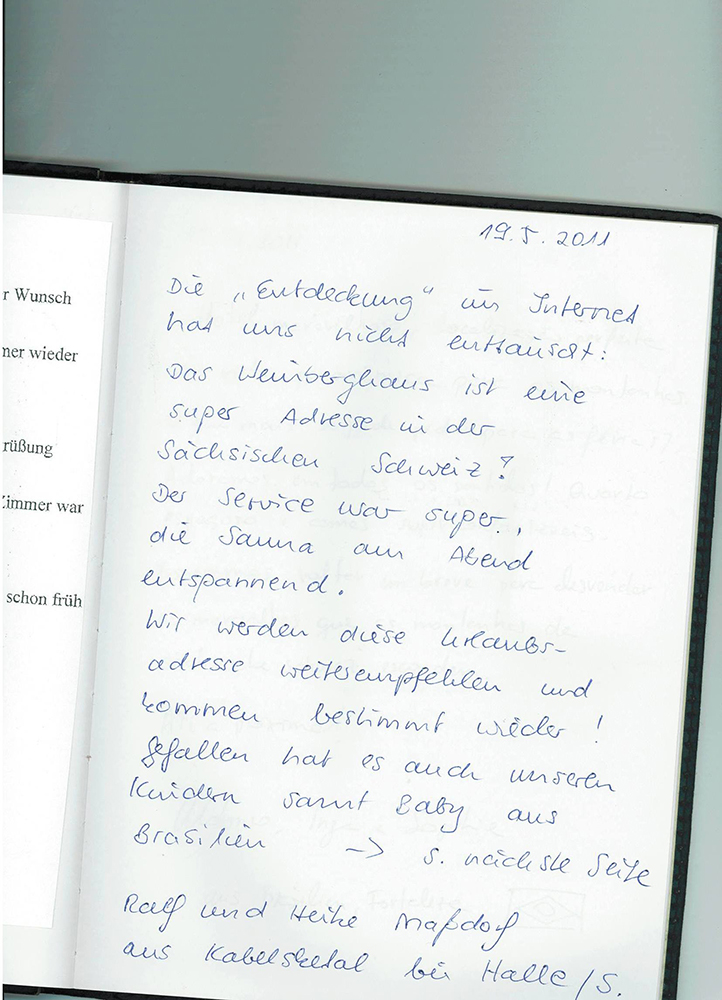 r Wunsch
ner wieder
rüßung
Zimmer war
schon früh
19.5.2011
Die „Entdeckung“ im Internet
hat uns nicht enttäuscht:
Das Weinberghaus ist eine
super Adresse in der
Sächsischen Schweiz!
Der Service war super,
die Sauna am Abend
entspannend.
Wir werden diese Urlaubs-
adresse weiterempfehlen und
kommen bestimmt wieder!
Gefallen hat es auch unseren
Kindern samt Baby aus
Brasilien → s. nächste Seite
Ralf und Heike Maßdorf
aus Kabelsketal bei Halle/S.